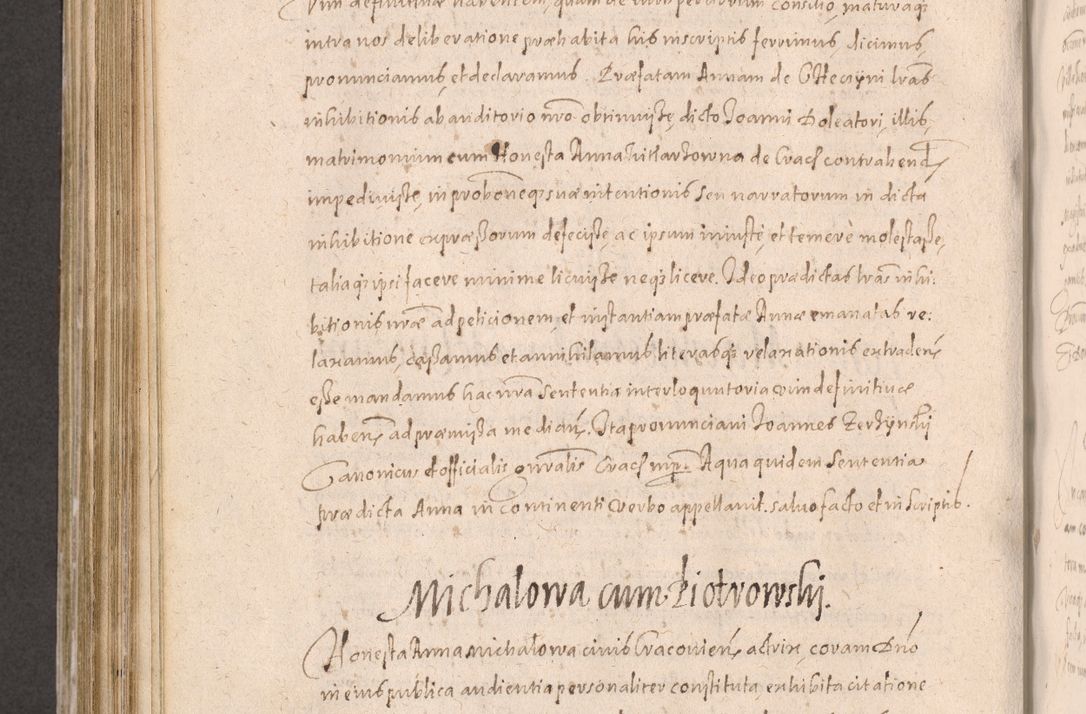 vim definitivæ habentem, quam de iuris peritorum consilio, maturaq3
intra nos deliberatione præhabita his inscriptis ferrimus, dicimus,
pronunciamus, et declaramus. Præfatam Annam de lr̃as
inhibitionis ab auditorio nr̃o obtinuisse, dicto Joanni Doleatori, illis
matrimonium cum Honesta Anna de Crac̃ contrahend̃
impedivisse, in probõneq3 suæ intentionis seu narratorum in dicta
inhibitione expræssorum defecisse, ac ipsum iniuste, et temerè molestasse,
taliaq3 ipsi facere minime licuisse neq3 licere. Ideo prædictas lr̃as inhi:
bitionis nr̃æ ad peticionem, et instantiam præfatæ Annæ emanatas re:
laxamus, cassamus et annihilamus literasq3 relaxationis extraden̄
esse mandamus hac nr̃a Sententia interloquutoria vim definitivæ
haben̄ ad præmissa median̄. Ita pronunciavi Joannes Zerzÿnski
Canonicus et officialis gn̄ralis Crac̃ mp̄. A qua quidem Sententia
prædicta Anna in continenti verbo appellavit. salvo facto et in Scriptis.
Michalowa cum Piotrowskj.
Honesta Anna Michalowa civis Cracovien̄ actrix, coram Dn̄o
in eius publica audientia personaliter constituta, exhibita citatione